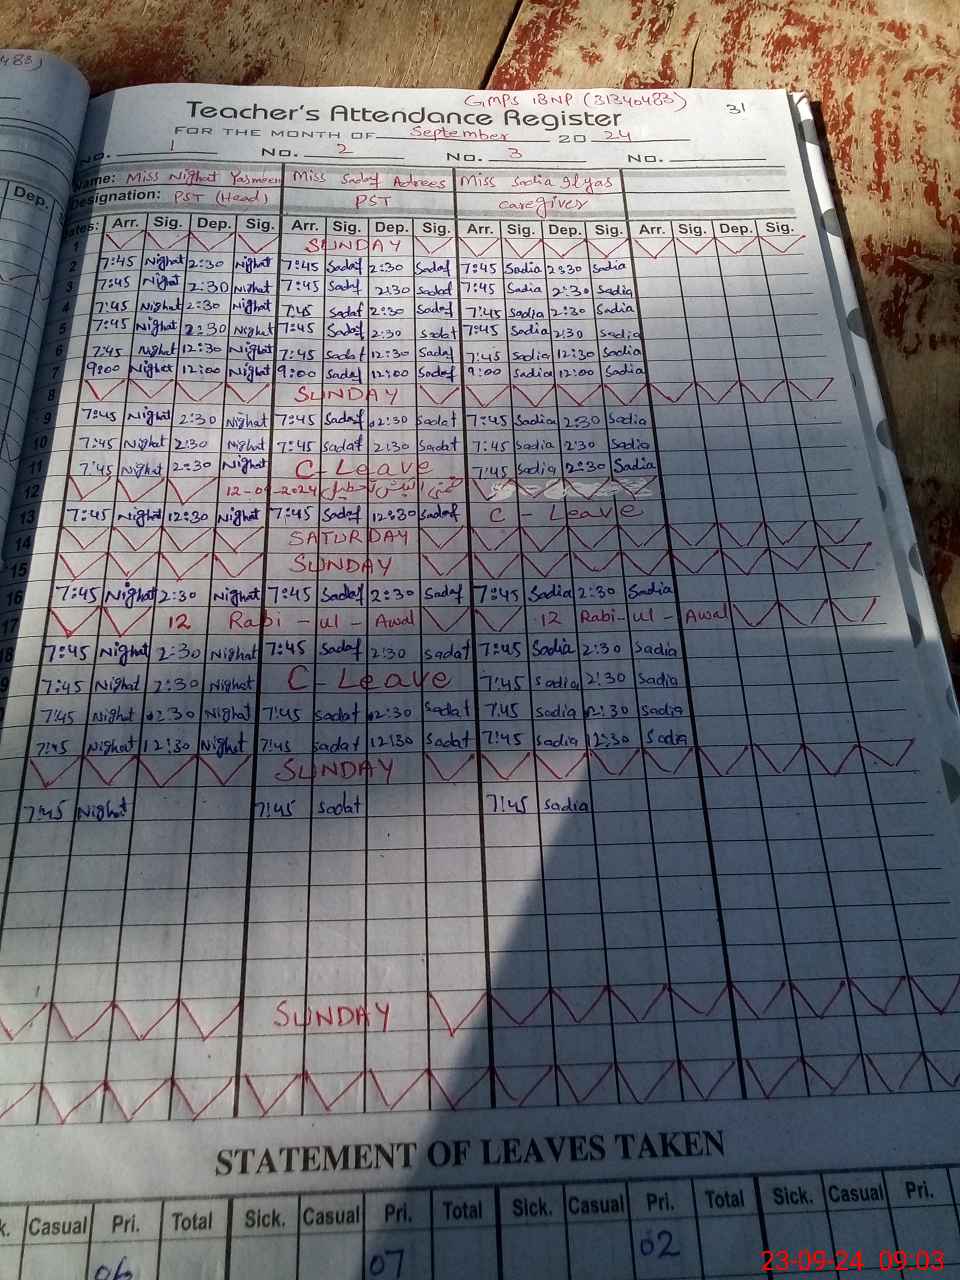 483)
GMPS IBNP (31340483)
31
Teacher's Attendance Register
FOR THE MONTH OF September 2024
No. 1 No. 2 No. 3 No.
Name: Miss Nighat Yasmeen Miss Sadaf Adrees Miss Sadia Ilyas
Designation: PST (Head) PST caregiver
Dep.
Dates: Arr. Sig. Dep. Sig. Arr. Sig. Dep. Sig. Arr. Sig. Dep. Sig. Arr. Sig. Dep. Sig.
1 SUNDAY
2 7:45 Nighat 2:30 Nighat 7:45 Sadaf 2:30 Sadaf 7:45 Sadia 2:30 Sadia
3 7:45 Nighat 2:30 Nighat 7:45 Sadaf 2:30 Sadaf 7:45 Sadia 2:30 Sadia
4 7:45 Nighat 2:30 Nighat 7:45 Sadaf 2:30 Sadaf 7:45 Sadia 2:30 Sadia
5 7:45 Nighat 2:30 Nighat 7:45 Sadaf 2:30 Sadaf 7:45 Sadia 2:30 Sadia
6 7:45 Nighat 12:30 Nighat 7:45 Sadaf 12:30 Sadaf 7:45 Sadia 12:30 Sadia
7 9:00 Nighat 12:00 Nighat 9:00 Sadaf 12:00 Sadaf 9:00 Sadia 12:00 Sadia
8 SUNDAY
9 7:45 Nighat 2:30 Nighat 7:45 Sadaf 02:30 Sadaf 7:45 Sadia 2:30 Sadia
10 7:45 Nighat 2:30 Nighat 7:45 Sadaf 2:30 Sadaf 7:45 Sadia 2:30 Sadia
11 7:45 Nighat 2:30 Nighat C-Leave 7:45 Sadia 2:30 Sadia
12 12-09-2024 ضمنی الیکشن تعطیل
13 7:45 Nighat 12:30 Nighat 7:45 Sadaf 12:30 Sadaf C-Leave
14 SATURDAY
15 SUNDAY
16 7:45 Nighat 2:30 Nighat 7:45 Sadaf 2:30 Sadaf 7:45 Sadia 2:30 Sadia
17 12 Rabi-ul-Awal 12 Rabi-ul-Awal
18 7:45 Nighat 2:30 Nighat 7:45 Sadaf 2:30 Sadaf 7:45 Sadia 2:30 Sadia
9 7:45 Nighat 2:30 Nighat C-Leave 7:45 Sadia 2:30 Sadia
7:45 Nighat 02:30 Nighat 7:45 Sadaf 02:30 Sadaf 7:45 Sadia 2:30 Sadia
7:45 Nighat 12:30 Nighat 7:45 Sadaf 12:30 Sadaf 7:45 Sadia 12:30 Sadia
SUNDAY
7:45 Nighat 7:45 Sadaf 7:45 Sadia
SUNDAY
STATEMENT OF LEAVES TAKEN
k. Casual Pri. Total Sick. Casual Pri. Total Sick. Casual Pri. Total Sick. Casual Pri.
06 07 02
23-09-24 09:03